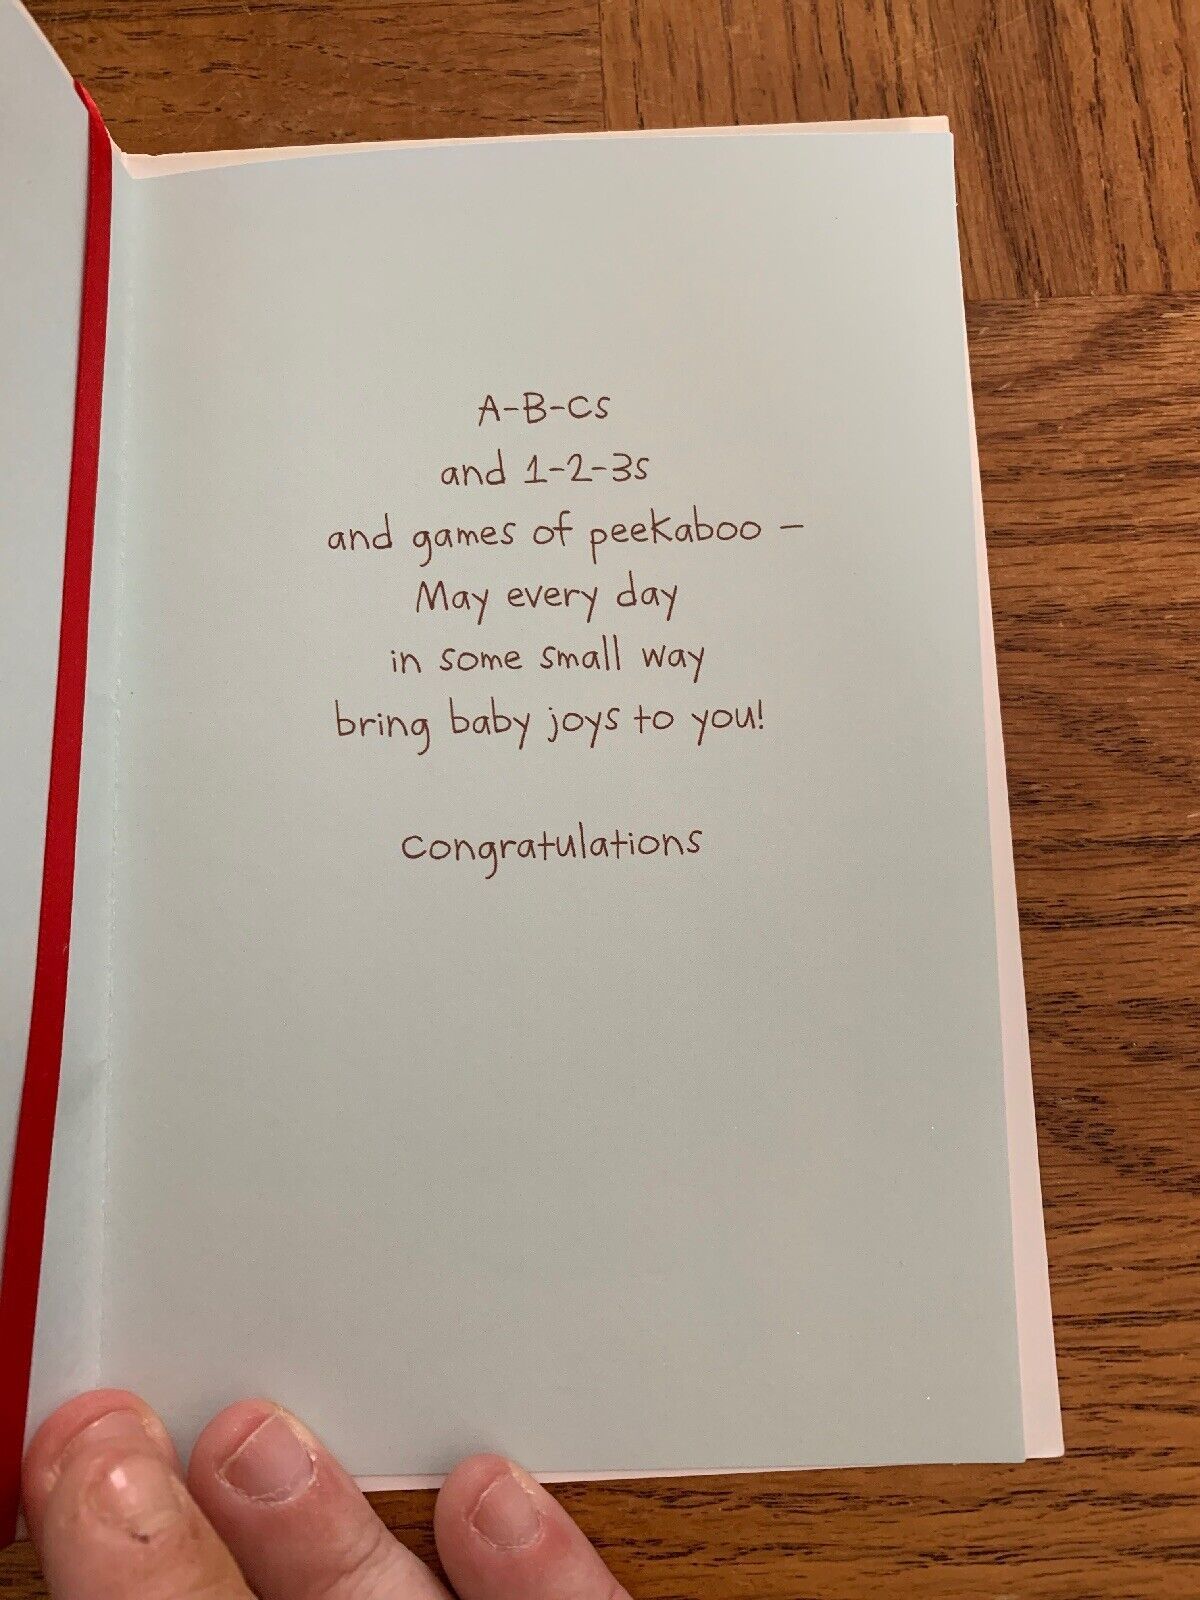 A-B-Cs
and 1-2-3s
and games of peekaboo –
May every day
in some small way
bring baby joys to you!
Congratulations